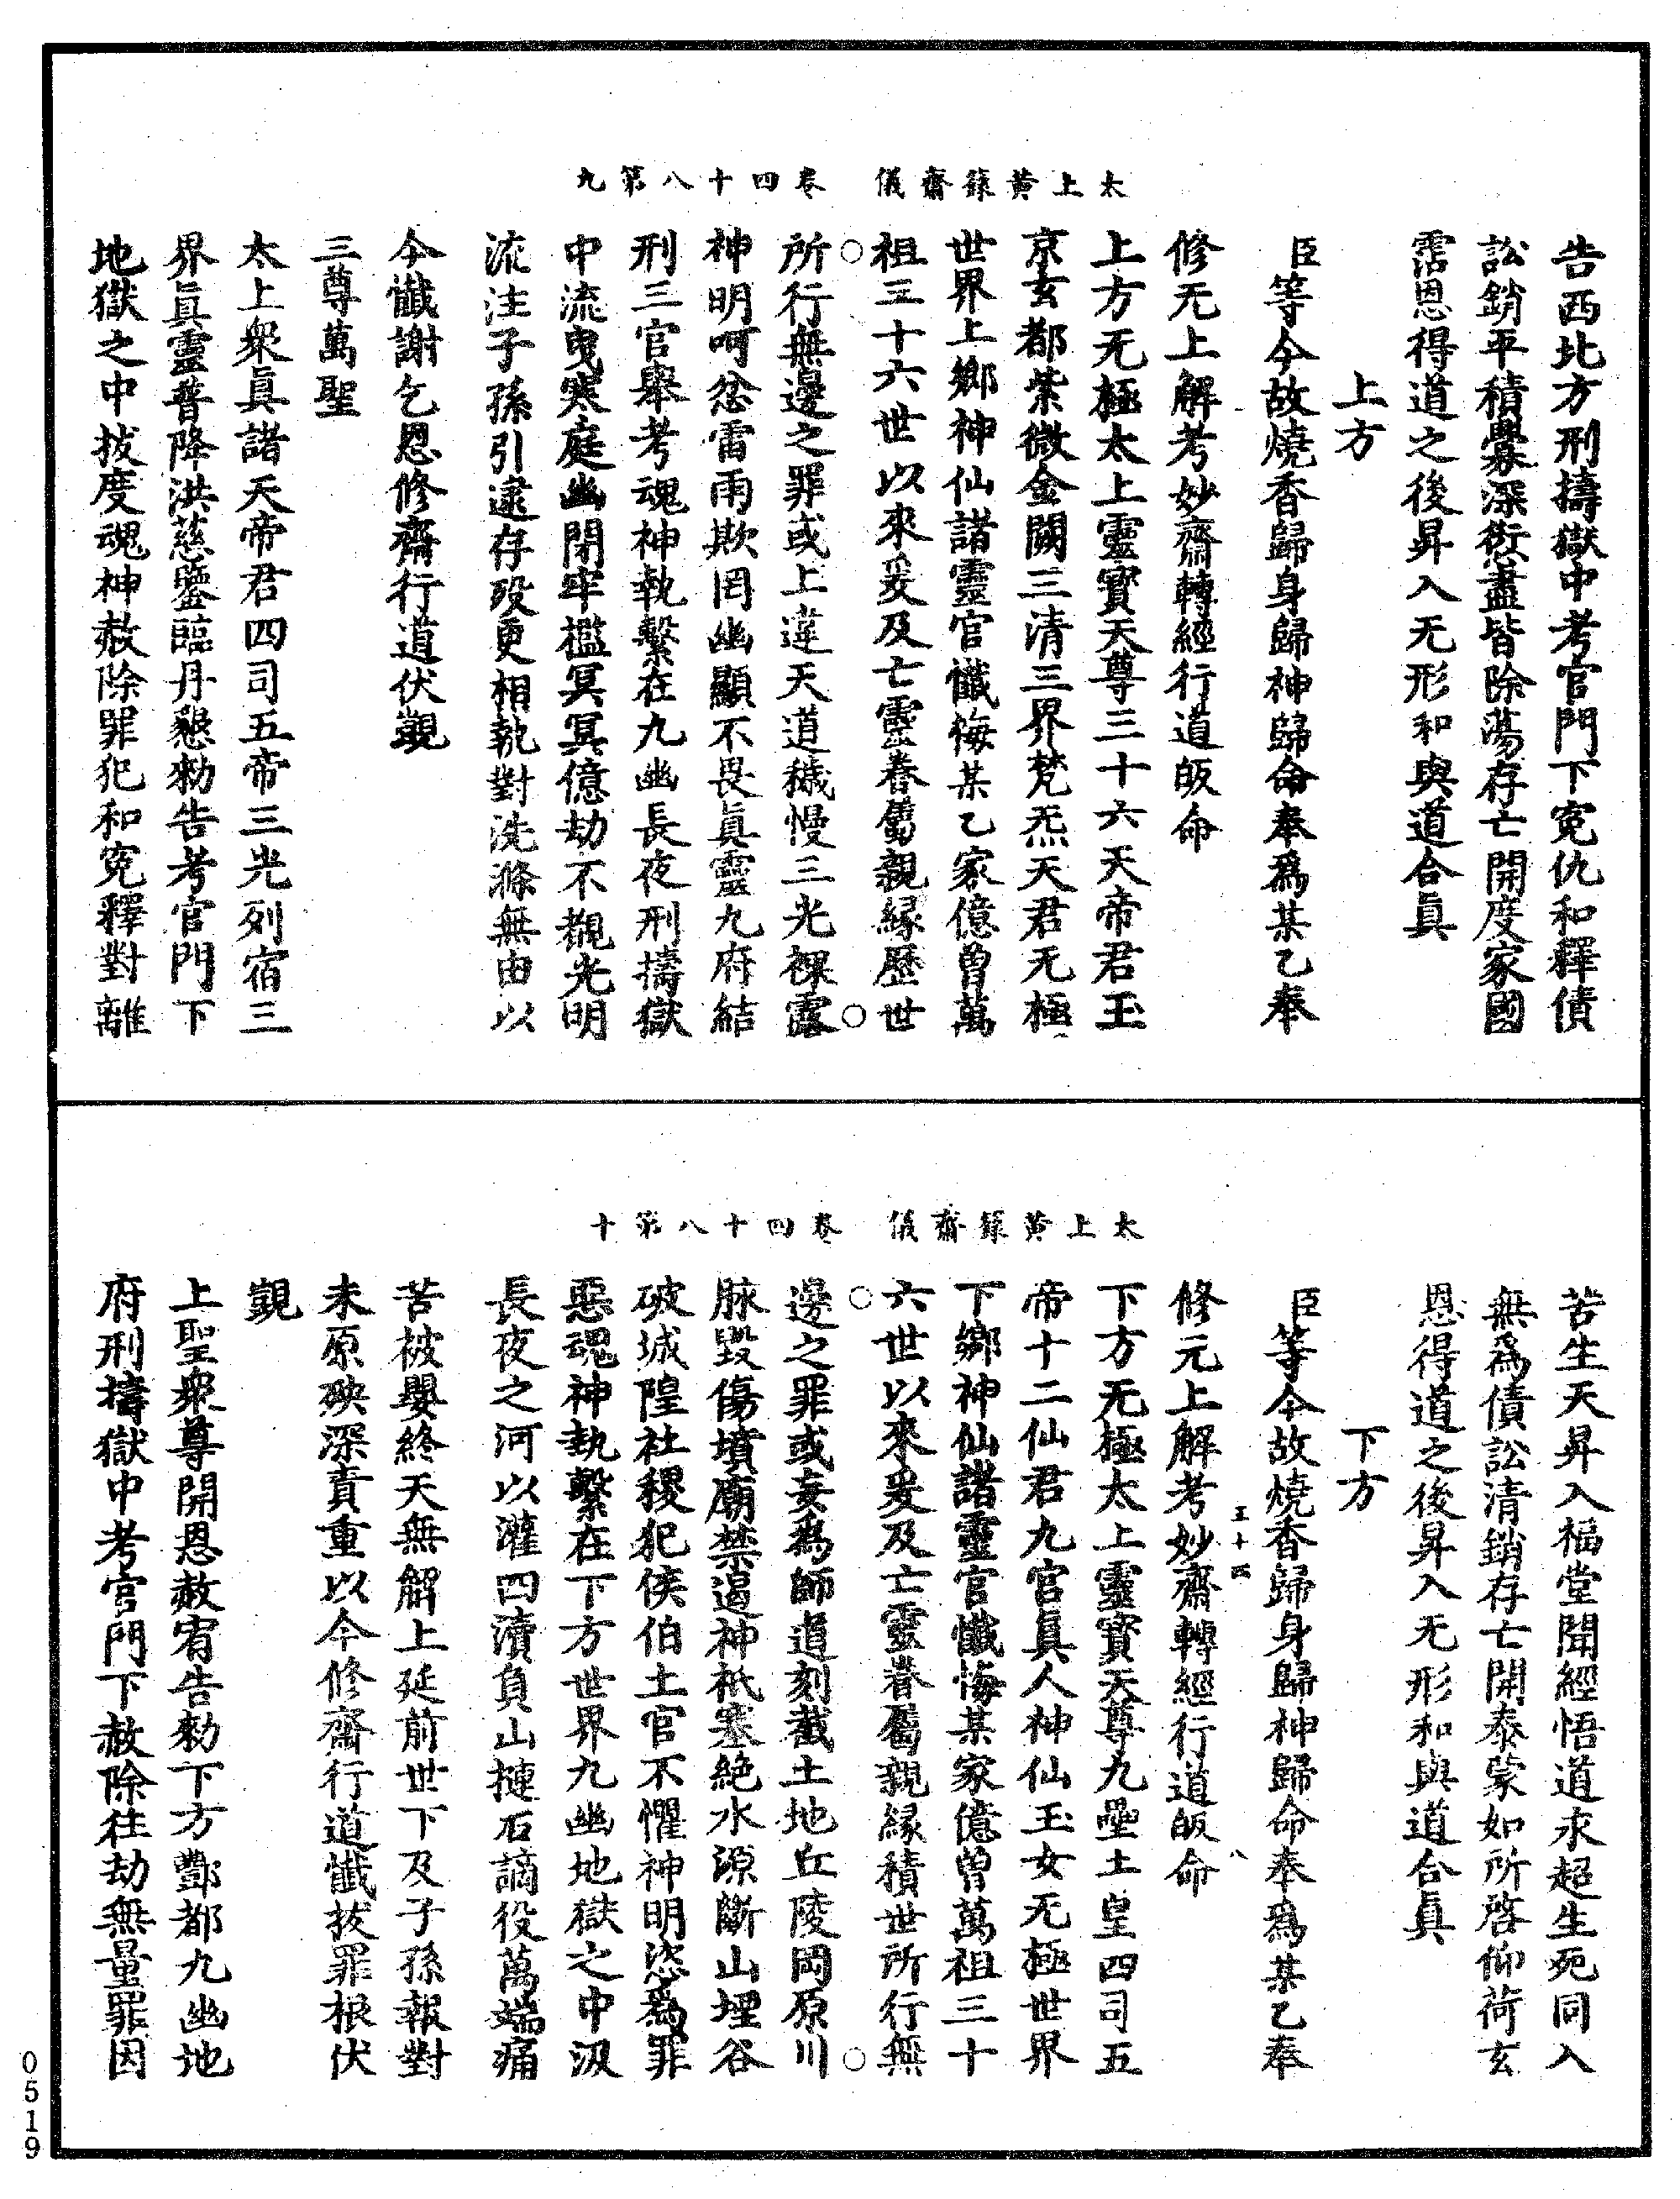 太上黃籙齋儀　卷四十八第九
告西北方刑擣獄中考官門下寃仇和釋債
訟銷平積釁深愆盡皆除蕩存亡開度家國
霑恩得道之後昇入无形和與道合眞
上方
臣等今故燒香歸身歸神歸命奉爲某乙奉
修无上解考妙齋轉經行道皈命
上方无極太上靈寳天尊三十六天帝君玉
京玄都紫微金闕三清三界梵炁天君无極
世界上鄉神仙諸靈官懺悔某乙家億曾萬
祖三十六世以來爰及亡靈眷屬親緣歷世
所行無邊之罪或上違天道穢慢三光裸露
神明呵忿雷雨欺罔幽顯不畏眞靈九府結
刑三官舉考魂神執繫在九幽長夜刑擣獄
中流曳寒庭幽閉牢檻冥冥億劫不覩光明
流注子孫引逮存歿更相執對洗滌無由以
今懺謝乞恩修齋行道伏覬
三尊萬聖
太上衆眞諸天帝君四司五帝三光列宿三
界眞靈普降洪慈鑒臨丹懇勑告考官門下
地獄之中拔度魂神赦除罪犯和寃釋對離
太上黃籙齋儀　卷四十八第十
苦生天昇入福堂聞經悟道永超生死同入
無爲債訟清銷存亡開泰蒙如所啓仰荷玄
恩得道之後昇入无形和與道合眞
下方
臣等今故燒香歸身歸神歸命奉爲某乙奉
五十四　八
修元上解考妙齋轉經行道皈命
下方无極太上靈寳天尊九壘土皇四司五
帝十二仙君九官眞人神仙玉女无極世界
下鄉神仙諸靈官懺悔某家億曾萬祖三十
六世以來爰及亡靈眷屬親緣積世所行無
邊之罪或妄爲師道刻截土地丘陵岡原川
脉毀傷墳廟禁遏神祇塞絶水源斷山堙谷
破城隍社稷犯侯伯土官不懼神明恣爲罪
惡魂神執繫在下方世界九幽地獄之中汲
長夜之河以灌四瀆負山揵石謫役萬端痛
苦被嬰終天無解上延前世下及子孫報對
未原殃深責重以今修齋行道懺拔罪根伏
覬
上聖衆尊開恩赦宥告勑下方酆都九幽地
府刑擣獄中考官門下赦除往劫無量罪因
0519